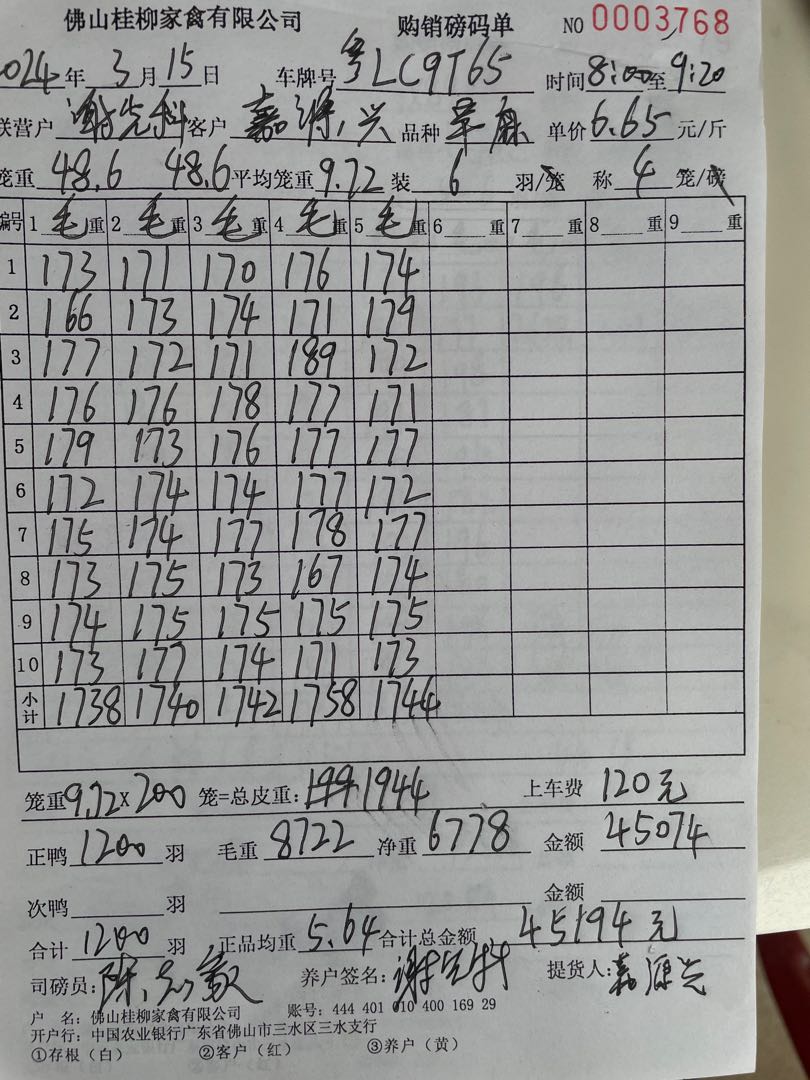 佛山桂柳家禽有限公司 购销磅码单 NO 0003768
2024年 3月15日 车牌号 粤LC9T65 时间8:00至9:20
联营户 谢先科 客户 嘉源兴 品种 草麻 单价6.65元/斤
笼重 48.6 48.6 平均笼重 9.72 装 6 羽/笼 称 4 笼/磅
编号 1毛重 2毛重 3毛重 4毛重 5毛重 6 重 7 重 8 重 9 重
1 173 171 170 176 174
2 166 173 174 171 179
3 177 172 171 189 172
4 176 176 178 177 171
5 179 173 176 177 177
6 172 174 174 177 172
7 175 174 177 178 177
8 173 175 173 167 174
9 174 175 175 175 175
10 173 177 174 171 173
小计 1738 1740 1742 1758 1744
笼重9.72×200 笼=总皮重: 1944 上车费 120元
正鸭 1200 羽 毛重 8722 净重 6778 金额 45074
次鸭 羽 金额
合计 1200 羽 正品均重 5.64 合计总金额 45194元
司磅员: 陈 养户签名: 谢先科 提货人: 嘉源兴
户 名: 佛山桂柳家禽有限公司 账号: 444 401 010 400 169 29
开户行: 中国农业银行广东省佛山市三水区三水支行
①存根(白) ②客户(红) ③养户(黄)